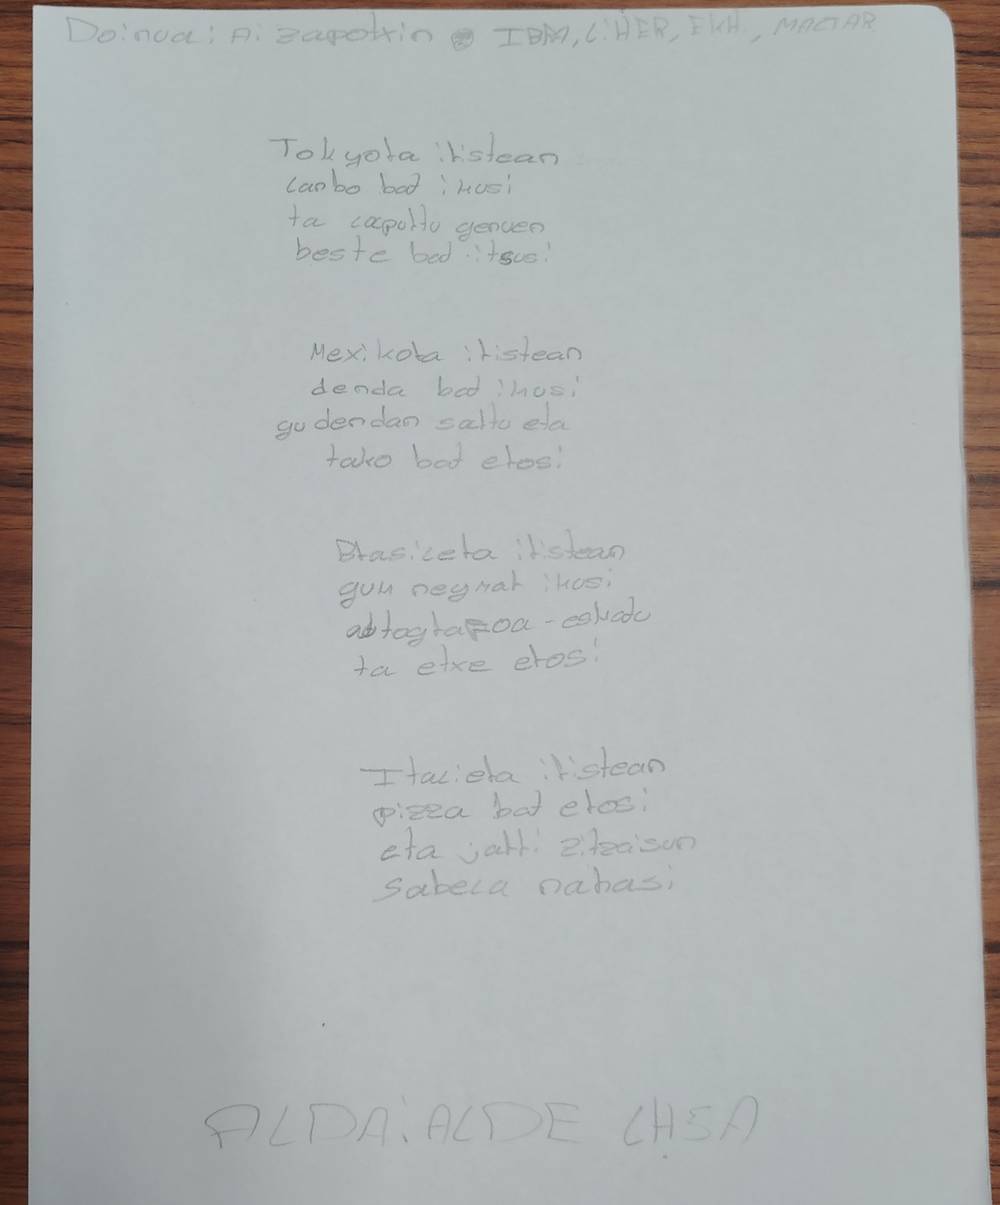 Doinua: Ai zapotxin IBAI, LIHER, EKHI,
Tokyora iristean
lanbo bat ikusi
ta genuen
beste bat itsusi
Mexikora iristean
denda bat ikusi
gu dendan sartu eta
tako bat erosi
Brasilera iristean
guk neymar ikusi
autografoa-eskatu
ta etxe erosi
Italiera iristean
pizza bat erosi
eta jarri zitzaigun
sabela nahasi
ALDAIALDE LH5A